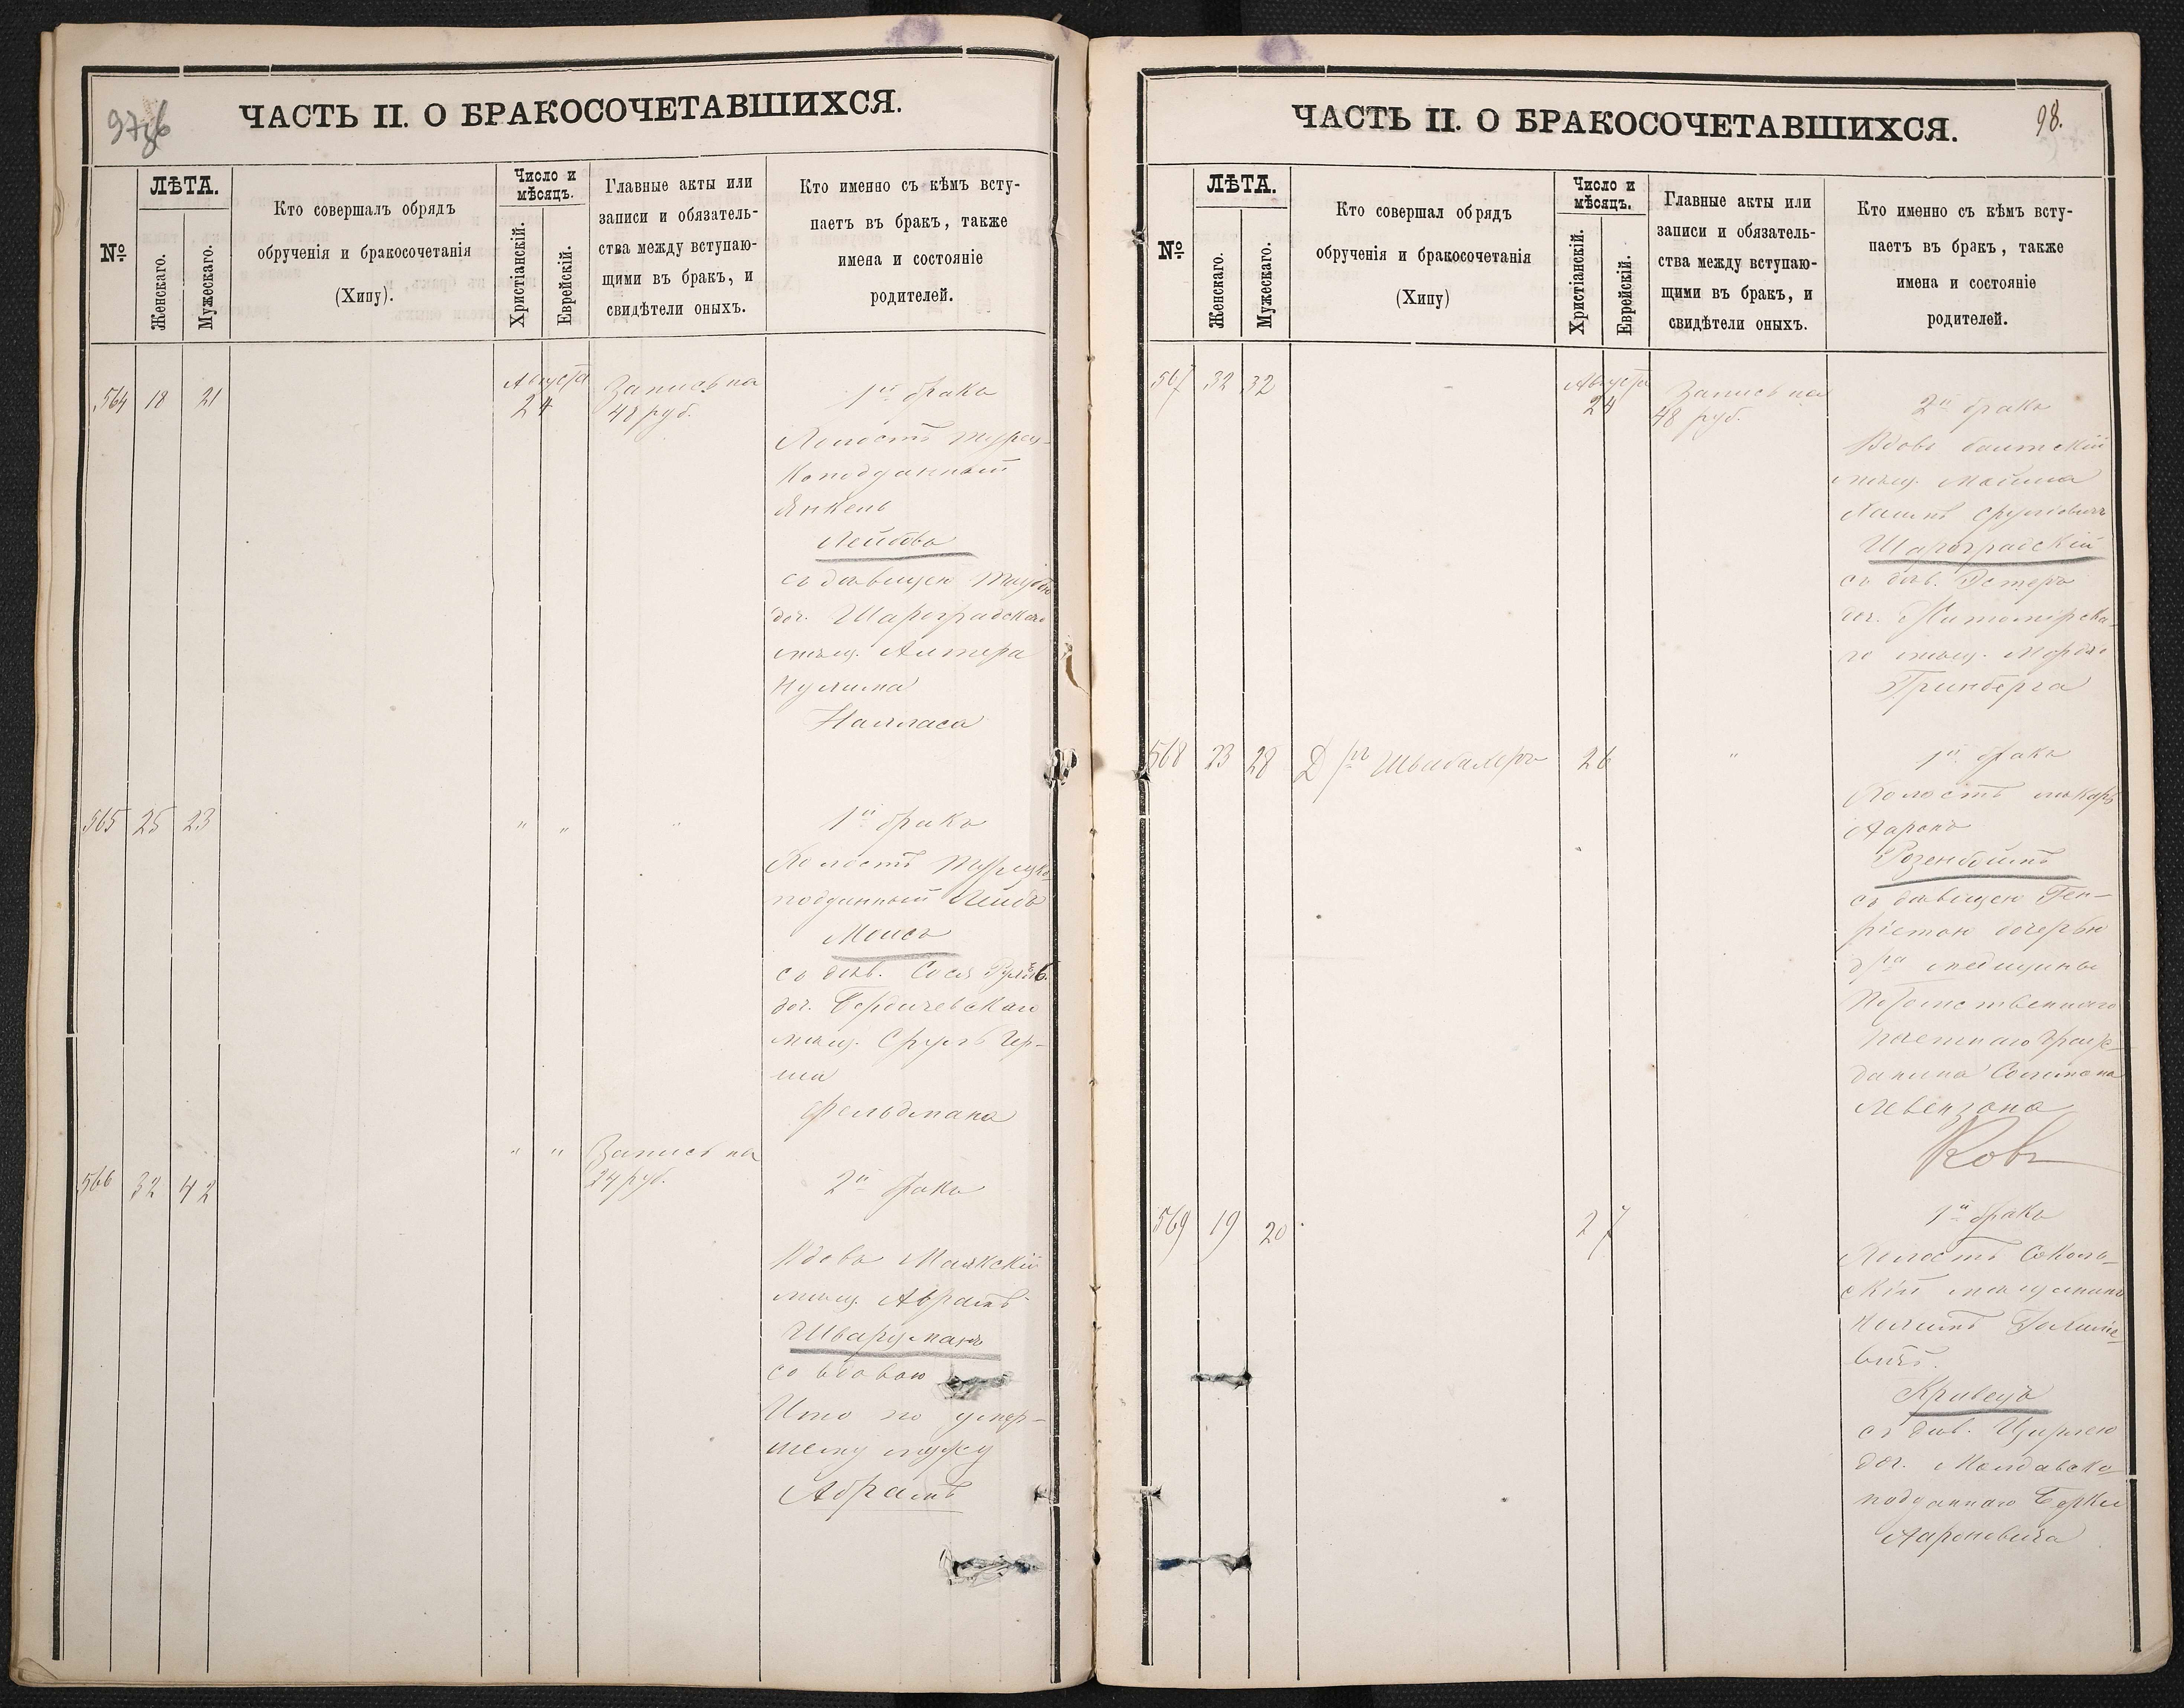 97об
ЧАСТЬ II. О БРАКОСОЧЕТАВШИХСЯ.
№
ЛѢТА.
Женскаго.
Мужескаго.
Кто совершалъ обрядъ
обрученія и бракосочетанія
(Хипу).
Число и
мѣсяцъ.
Христіанскій.
Еврейскій.
Главные акты или
записи и обязатель-
ства между вступаю-
щими въ бракъ, и
свидѣтели оныхъ.
Кто именно съ кѣмъ всту-
паетъ въ бракъ, также
имена и состояніе
родителей.
564 18 21
Августа
24
Запись на
48 руб.
1й бракъ
Холостъ турец-
коподданный
Янкель
Лейбовъ
съ дѣвицею
доч. Шароградскаго
мѣщ. Алтера
565 25 23 " " "
1й бракъ
Холостъ Турецко-
подданный Лейбъ
съ дѣв. Сося
доч. Бердичевскаго
мѣщ. Сруль Гер-
ша
Фельдмана
566 32 42 " "
Запись на
24 руб.
2й бракъ
Вдовъ Маякскій
мѣщ. Абрамъ
Шварцманъ
со вдовою
по умер-
шему мужу
Абрамъ
98.
ЧАСТЬ II. О БРАКОСОЧЕТАВШИХСЯ.
№
ЛѢТА.
Женскаго.
Мужескаго.
Кто совершал обрядъ
обрученія и бракосочетанія
(Хипу)
Число и
мѣсяцъ.
Христіанскій.
Еврейскій.
Главные акты или
записи и обязатель-
ства между вступаю-
щими въ бракъ, и
свидѣтели оныхъ.
Кто именно съ кѣмъ всту-
паетъ въ бракъ, также
имена и состояніе
родителей.
567 32 32
Августа
24
Запись на
48 руб.
2й бракъ
Вдовъ балтскій
мѣщ.
Хаимъ Сруловичъ
Шароградскій
съ дѣв. Эстеръ
доч. Житомірска-
го мѣщ.
Гринберга
568 23 28 Д рь Швабахеръ 26 "
1й бракъ
Холостъ лекарь
Ааронъ
Розенблюмъ
съ дѣвицею Ген-
ріетою дочерью
д ра медицины
Потомственнаго
почетнаго граж-
данина Соломона
Левензона
569 19 20 27
1й бракъ
Холостъ
скій мѣщанинъ
вичъ.
Кривецъ
съ дѣв. Цирлею
доч. Молдавско
подданнаго Берки
Ароновича